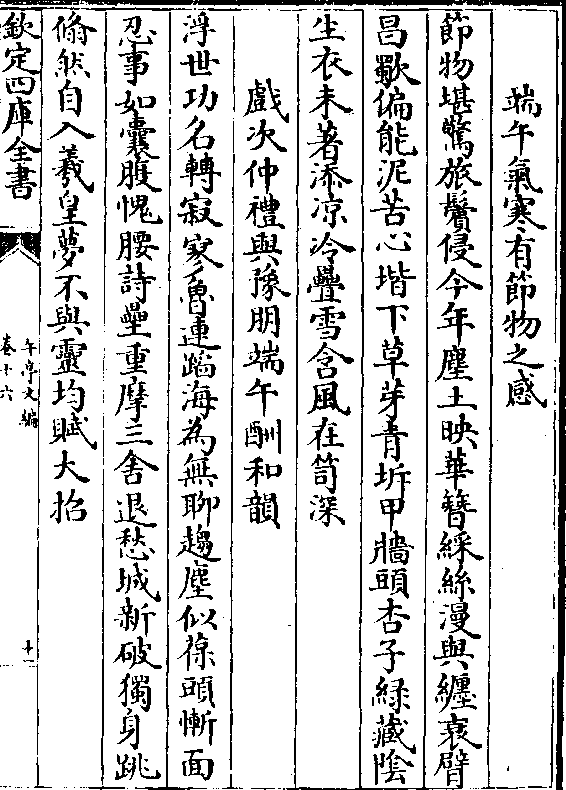 端午氣寒有節物之感
節物堪驚旅鬢侵今年塵土映華簪綵絲漫與纏衰臂
昌歜偏能泥苦心堦下草芽青坼甲牆頭杏子綠藏陰
生衣未著添凉冷疊雪含風在笥深
戲次仲禮與豫朋端午酬和韻
浮世功名轉寂寥魯連蹈海為無聊趨塵似葆頭慚面
忍事如囊腹愧腰詩壘重摩三舍退愁城新破獨身跳
翛然自入羲皇夢不與靈均賦大招
欽定四庫全書
午亭文編
卷十六
十一